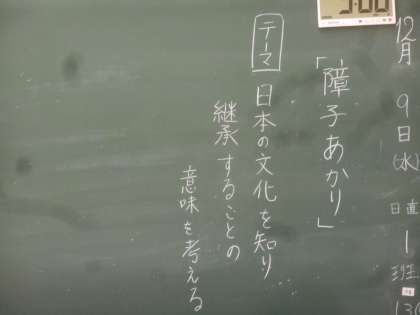 12月9日(水)
日直 1班
「障子あかり」
テーマ 日本の文化を知り
継承することの
意味を考える